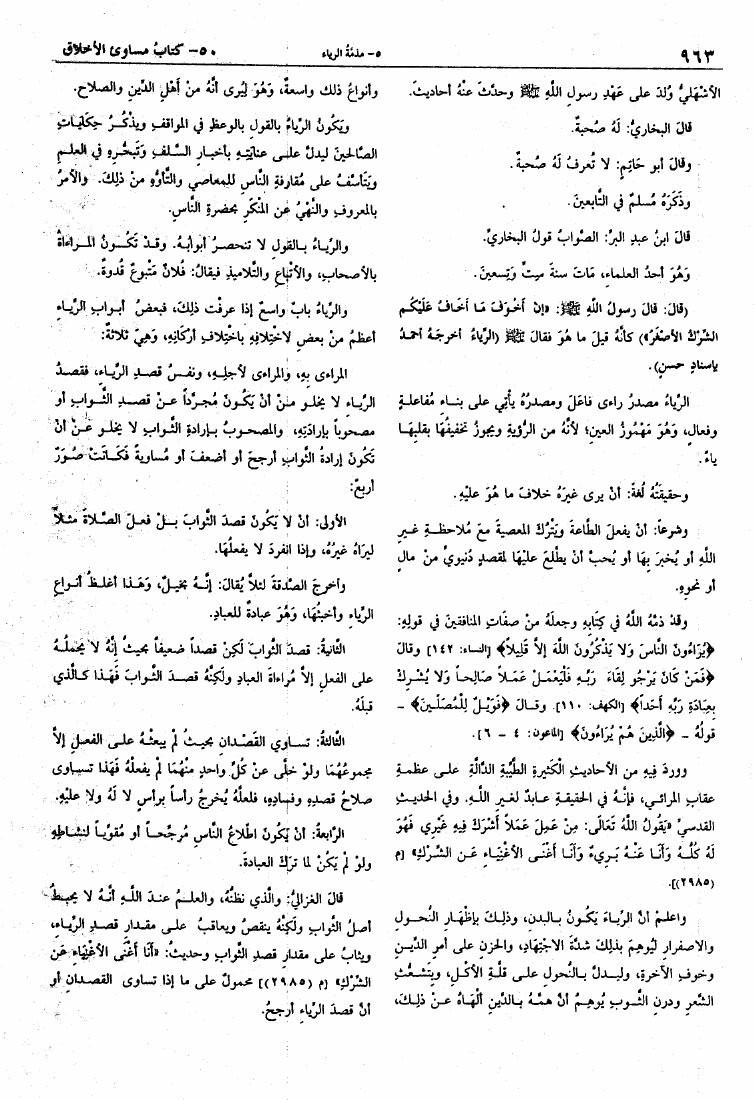 ٩٦٣
٥- مذمَّة الرياء
٥٠- كتابُ مساوئ الأخلاق
الأشهليُّ وُلدَ على عَهْدِ رسولِ اللَّهِ ﷺ وحدَّثَ عنْهُ أحاديثَ.
قالَ البخاريُّ: لَهُ صُحبةٌ.
وقالَ أبو حَاتِمٍ: لا تُعرفُ لَهُ صُحبةٌ.
وذَكَرَهُ مُسلمٌ في التَّابعينَ.
قالَ ابنُ عبدِ البرِّ: الصَّوابُ قولُ البخاريِّ.
وَهُوَ أحدُ العلماءِ، مَاتَ سنةَ سِتٍّ وتِسعينَ.
(قالَ: قالَ رسولُ اللَّهِ ﷺ: «إنَّ أَخْوَفَ مَا أَخَافُ عَلَيْكُم
الشِّرْكُ الأصْغَرُ») كأنَّهُ قيلَ ما هُوَ فقالَ ﷺ (الرِّيَاءُ أخرجَهُ أحمدُ
بإسنادٍ حسنٍ).
الرِّياءُ مصدرُ راءى فاعَلَ ومصدرُهُ يأتي على بناءِ مُفاعلةٍ
وفِعالٍ، وَهُوَ مَهْمُوزُ العينِ؛ لأنَّهُ من الرُّؤيةِ ويجوزُ تخفيفُهَا بقلبِهَا
ياءً.
وحقيقتُهُ لُغةً: أنْ يرى غيرَهُ خلافَ ما هُوَ عليْهِ.
وشرعاً: أنْ يفعلَ الطَّاعةَ ويَتْرُكَ المعصيةَ معَ مُلاحظةِ غيرِ
اللَّهِ أو يُخبرَ بِهَا أو يُحبَّ أنْ يطَّلعَ عليْهَا لمقصدٍ دُنيويٍّ منْ مالٍ
أو نحوِهِ.
وقدْ ذمَّهُ اللَّهُ في كِتابِهِ وجعلَهُ منْ صفاتِ المنافقينَ في قولِهِ:
﴿يُرَاءُونَ النَّاسَ وَلا يَذْكُرُونَ اللَّهَ إلاَّ قَلِيلاً﴾ [النساء: ١٤٢] وقالَ
﴿فَمَنْ كَانَ يَرْجُو لِقَاءَ رَبِّهِ فَلْيَعْمَلْ عَمَلاً صَالِحاً وَلا يُشْرِكْ
بِعِبَادَةِ رَبِّهِ أَحَداً﴾ [الكهف: ١١٠]. وقالَ ﴿فَوَيْلٌ لِلْمُصَلِّينَ﴾ -
قولُهُ - ﴿الَّذِينَ هُمْ يُرَاءُونَ﴾ [الماعون: ٤ - ٦].
ووردَ فيهِ من الأحاديثِ الكثيرةِ الطَّيِّبةِ الدَّالَّةِ على عظمةِ
عقابِ المرائي، فإنَّهُ في الحقيقةِ عابدٌ لغيرِ اللَّهِ. وفي الحديثِ
القدسيِّ «يَقُولُ اللَّهُ تَعَالَى: مِنْ عَمِلَ عَمَلاً أَشْرَكَ فِيهِ غَيْرِي فَهُوَ
لَهُ كُلُّهُ وَأَنَا عَنْهُ بَرِيءٌ وَأَنَا أَغْنَى الأَغْنِيَاءِ عَنِ الشِّرْكِ» [م
(٢٩٨٥)].
واعلمْ أنَّ الرِّياءَ يَكُونُ بالبدنِ، وذلكَ بإظهارِ النُّحولِ
والاصفرارِ ليُوهمَ بذلكَ شدَّةَ الاجتهادِ، والحزنِ على أمرِ الدِّينِ
وخوفِ الآخرةِ، وليدلَّ بالنُّحولِ على قلَّةِ الأكْلِ، وبتشعُّثِ
الشَّعرِ ودرنِ الثَّوبِ يُوهمُ أنَّ همَّهُ بالدِّينِ ألهَاهُ عنْ ذلكَ،
وأنواعُ ذلكَ واسعةٌ، وَهُوَ لِيُرى أنَّهُ منْ أهْلِ الدِّينِ والصلاحِ.
ويَكُونُ الرِّياءُ بالقولِ بالوعظِ في المواقفِ ويذكُرُ حِكَاياتِ
الصَّالحينَ ليدلَّ على عنايتِهِ بأخبارِ السَّلفِ وتَبحُّرِهِ في العلمِ
ويَتَأسَّفُ على مُقارفةِ النَّاسِ للمعاصي والتَّأوُّهِ منْ ذلكَ. والأمرُ
بالمعروفِ والنَّهْيُ عن المنْكَرِ بحضرةِ النَّاسِ.
والرِّياءُ بالقولِ لا تنحصرُ أبوابُهُ. وقدْ تَكُونُ المراءاةُ
بالأصحابِ، والأتْباعِ والتَّلاميذِ فيقالُ: فُلانٌ مَتْبوعٌ قُدوةٌ.
والرِّياءُ بابٌ واسعٌ إذا عرفْت ذلِكَ، فبعضُ أبوابِ الرِّياءِ
أعظمُ منْ بعضٍ لاختِلافِهِ باختِلافِ أرْكَانِهِ، وَهِيَ ثلاثةٌ:
المراءى بِهِ، والمراءى لأجلِهِ، ونفسُ قصدِ الرِّياءِ، فقصدُ
الرِّياءِ لا يخلو منْ أنْ يَكُونَ مُجرَّداً عنْ قصدِ الثَّوابِ أو
مصحوباً بإرادتِهِ، والمصحوبُ بإرادةِ الثَّوابِ لا يخلو عَنْ أنْ
تَكُونَ إرادةُ الثَّوابِ أرجحَ أو أضعفَ أو مُساويةً فَكَانَتْ صُوَرٌ
أربعٌ:
الأولى: أنْ لا يَكُونَ قصدَ الثَّوابَ بَلْ فعلَ الصَّلاةَ مثلاً
ليرَاهُ غيرُهُ، وإذا انفردَ لا يفعلُهَا.
وأخرجَ الصَّدقةَ لئلاَّ يُقالَ: إنَّهُ بخيلٌ، وَهَذا أغلظُ أنواعِ
الرِّياءِ وأخبثُهَا، وَهُوَ عبادةٌ للعبادِ.
الثَّانيةُ: قصدَ الثَّوابَ لَكِنْ قصداً ضعيفاً بحيثُ إنَّهُ لا يحملُهُ
على الفعلِ إلاَّ مُراءاةُ العبادِ ولَكِنَّهُ قصدَ الثَّوابَ فَهَذا كَالَّذي
قبلَهُ.
الثَّالثةُ: تساوي القَصْدانِ بحيثُ لمْ يبعثْهُ على الفعلِ إلاَّ
مجموعُهُمَا ولوْ خلَّى عنْ كُلِّ واحدٍ منْهُمَا لمْ يفعلْهُ فَهَذا تساوى
صلاحُ قصدِهِ وفسادِهِ، فلعلَّهُ يُخرجُ رأساً برأسٍ لا لَهُ ولا عليْهِ.
الرَّابعةُ: أنْ يَكُونَ اطلاعُ النَّاسِ مُرجِّحاً أو مُقوِّياً لنشاطِهِ
ولوْ لمْ يَكُنْ لما تركَ العبادةَ.
قالَ الغزاليُّ: والَّذي نظنُّهُ، والعلمُ عندَ اللَّهِ أنَّهُ لا يحبطُ
أصلُ الثَّوابِ ولَكِنَّهُ ينقصُ ويعاقبُ على مقدارِ قصدِ الرِّياءِ،
ويثابُ على مقدارِ قصدِ الثَّوابِ وحديثُ: «أَنَا أَغْنَى الأَغْنِيَاءِ عَنِ
الشِّرْكِ» [م (٢٩٨٥)] محمولٌ على ما إذا تساوى القصدانِ أو
أنَّ قصدَ الرِّياءِ أرجحُ.